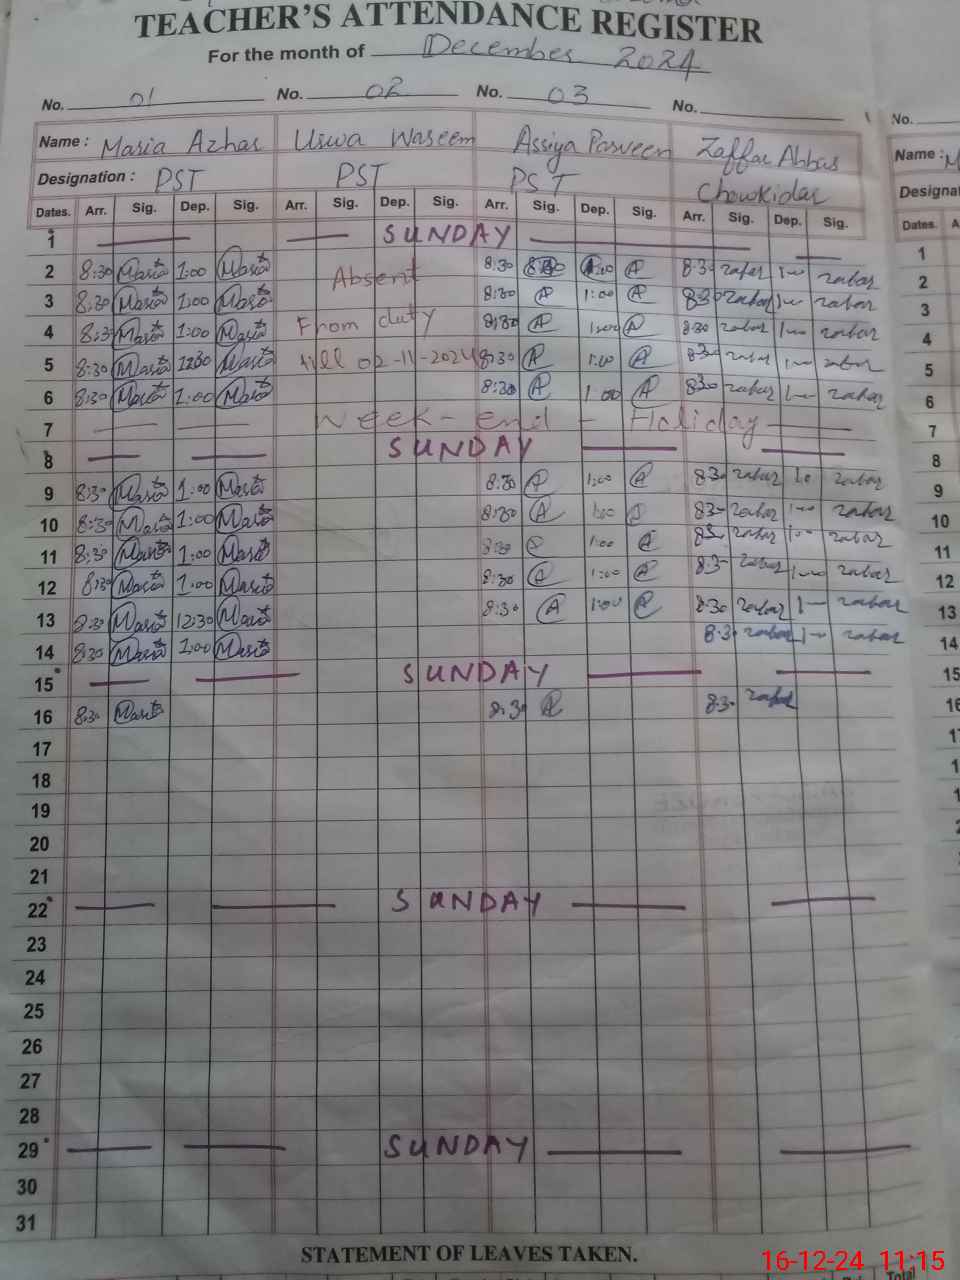 TEACHER'S ATTENDANCE REGISTER
For the month of December 2024
No. 01 No. 02 No. 03 No. No.
Name : Maria Azhar Uswa Waseem Assiya Parveen Zaffar Abbas Name :
Designation : PST PST PST Chowkidar
Dates. Arr. Sig. Dep. Sig. Arr. Sig. Dep. Sig. Arr. Sig. Dep. Sig. Arr. Sig. Dep. Sig. Dates.
1 SUNDAY 1
2 8:30 Maria 1:00 Maria Absent 8:30 1:00 A 8:30 zafar 1-- zafar 2
3 8:30 Maria 1:00 Maria 8:30 A 1:00 A 8:30 zafar 1-- zafar 3
4 8:30 Maria 1:00 Maria From duty 8:30 A 1:00 A 8:30 zafar 1-- zafar 4
5 8:30 Maria 12:30 Maria till 02-11-2024 8:30 A 1:00 A 8:30 zafar 1-- zafar 5
6 8:30 Maria 1:00 Maria 8:30 A 1:00 A 8:30 zafar 1-- zafar 6
7 Week-end - Holiday 7
8 SUNDAY 8
9 8:30 Maria 1:00 Maria 8:30 A 1:00 A 8:30 zafar zafar 9
10 8:30 Maria 1:00 Maria 8:30 A 1:00 8:30 zafar 1-- zafar 10
11 8:30 Maria 1:00 Maria 8:30 A 1:00 A 8:30 zafar zafar 11
12 8:30 Maria 1:00 Maria 8:30 A 1:00 A 8:30 zafar 1-- zafar 12
13 8:30 Maria 12:30 Maria 8:30 A 1:00 A 8:30 zafar 1-- zafar 13
14 8:30 Maria 1:00 Maria 8:30 zafar 1-- zafar 14
15 SUNDAY 15
16 8:30 Maria 8:30 A 8:30 zafar 16
17
18
19
20
21
22 SUNDAY
23
24
25
26
27
28
29 SUNDAY
30
31
STATEMENT OF LEAVES TAKEN.
16-12-24 11:15
Total